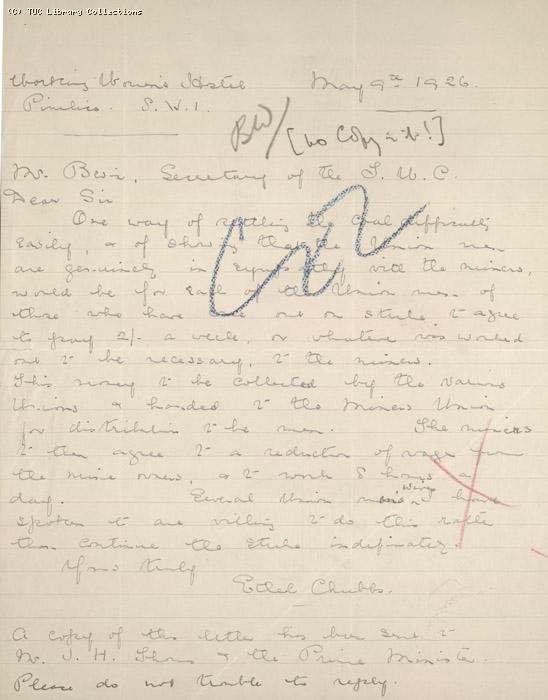 (C) TUC Library Collections
Working Women's Hostel May 9th 1926.
Pimlico. S.W.1.
BW/ [no copy in it!]
Mr. Bevin, Secretary of the T.U.C.
Dear Sir
One way of settling the coal difficulty
easily, & of showing that the Union men
are genuinely in sympathy with the miners,
would be for each of the Union men of
those who have come out on strike to agree
to pay 2/- a week, or whatever was worked
out to be necessary, to the miners.
This money to be collected by the various
Unions & handed to the Miners Union
for distribution to the men. The miners
to then agree to a reduction of wage from
the mine owners, & to work 8 hours a
day. Several Union men's wives I have
spoken to are willing to do this rather
than continue the strike indefinately.
Yours truly
Ethel Chubbs.
A copy of this letter has been sent to
Mr. J. H. Thomas & the Prime Minister.
Please do not trouble to reply.